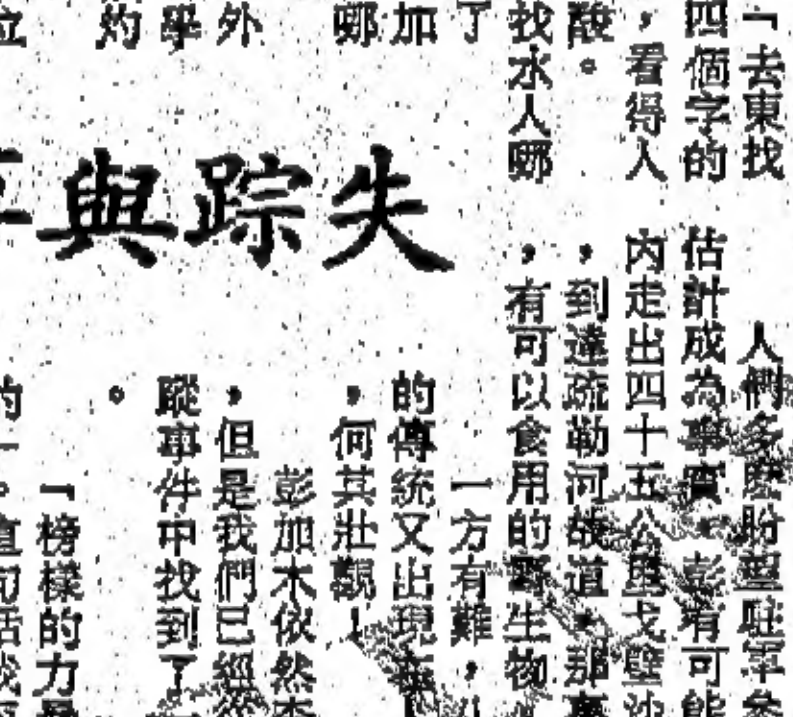 「去東找
四個字的
，看得人
酸。
找水人哪
了
加
哪
外
學
灼
失踪與
人們多麼盼望駐軍參
估計成為事實，彭有可能
內走出四十五公里戈壁沙
，到達疏勒河故道，那裏
，有可以食用的野生物
一方有難，
的傳統又出現在
，何其壯觀！
彭加木依然
，但是我們已經從
蹤事件中找到了
。
「榜樣的力量
的一。這句話